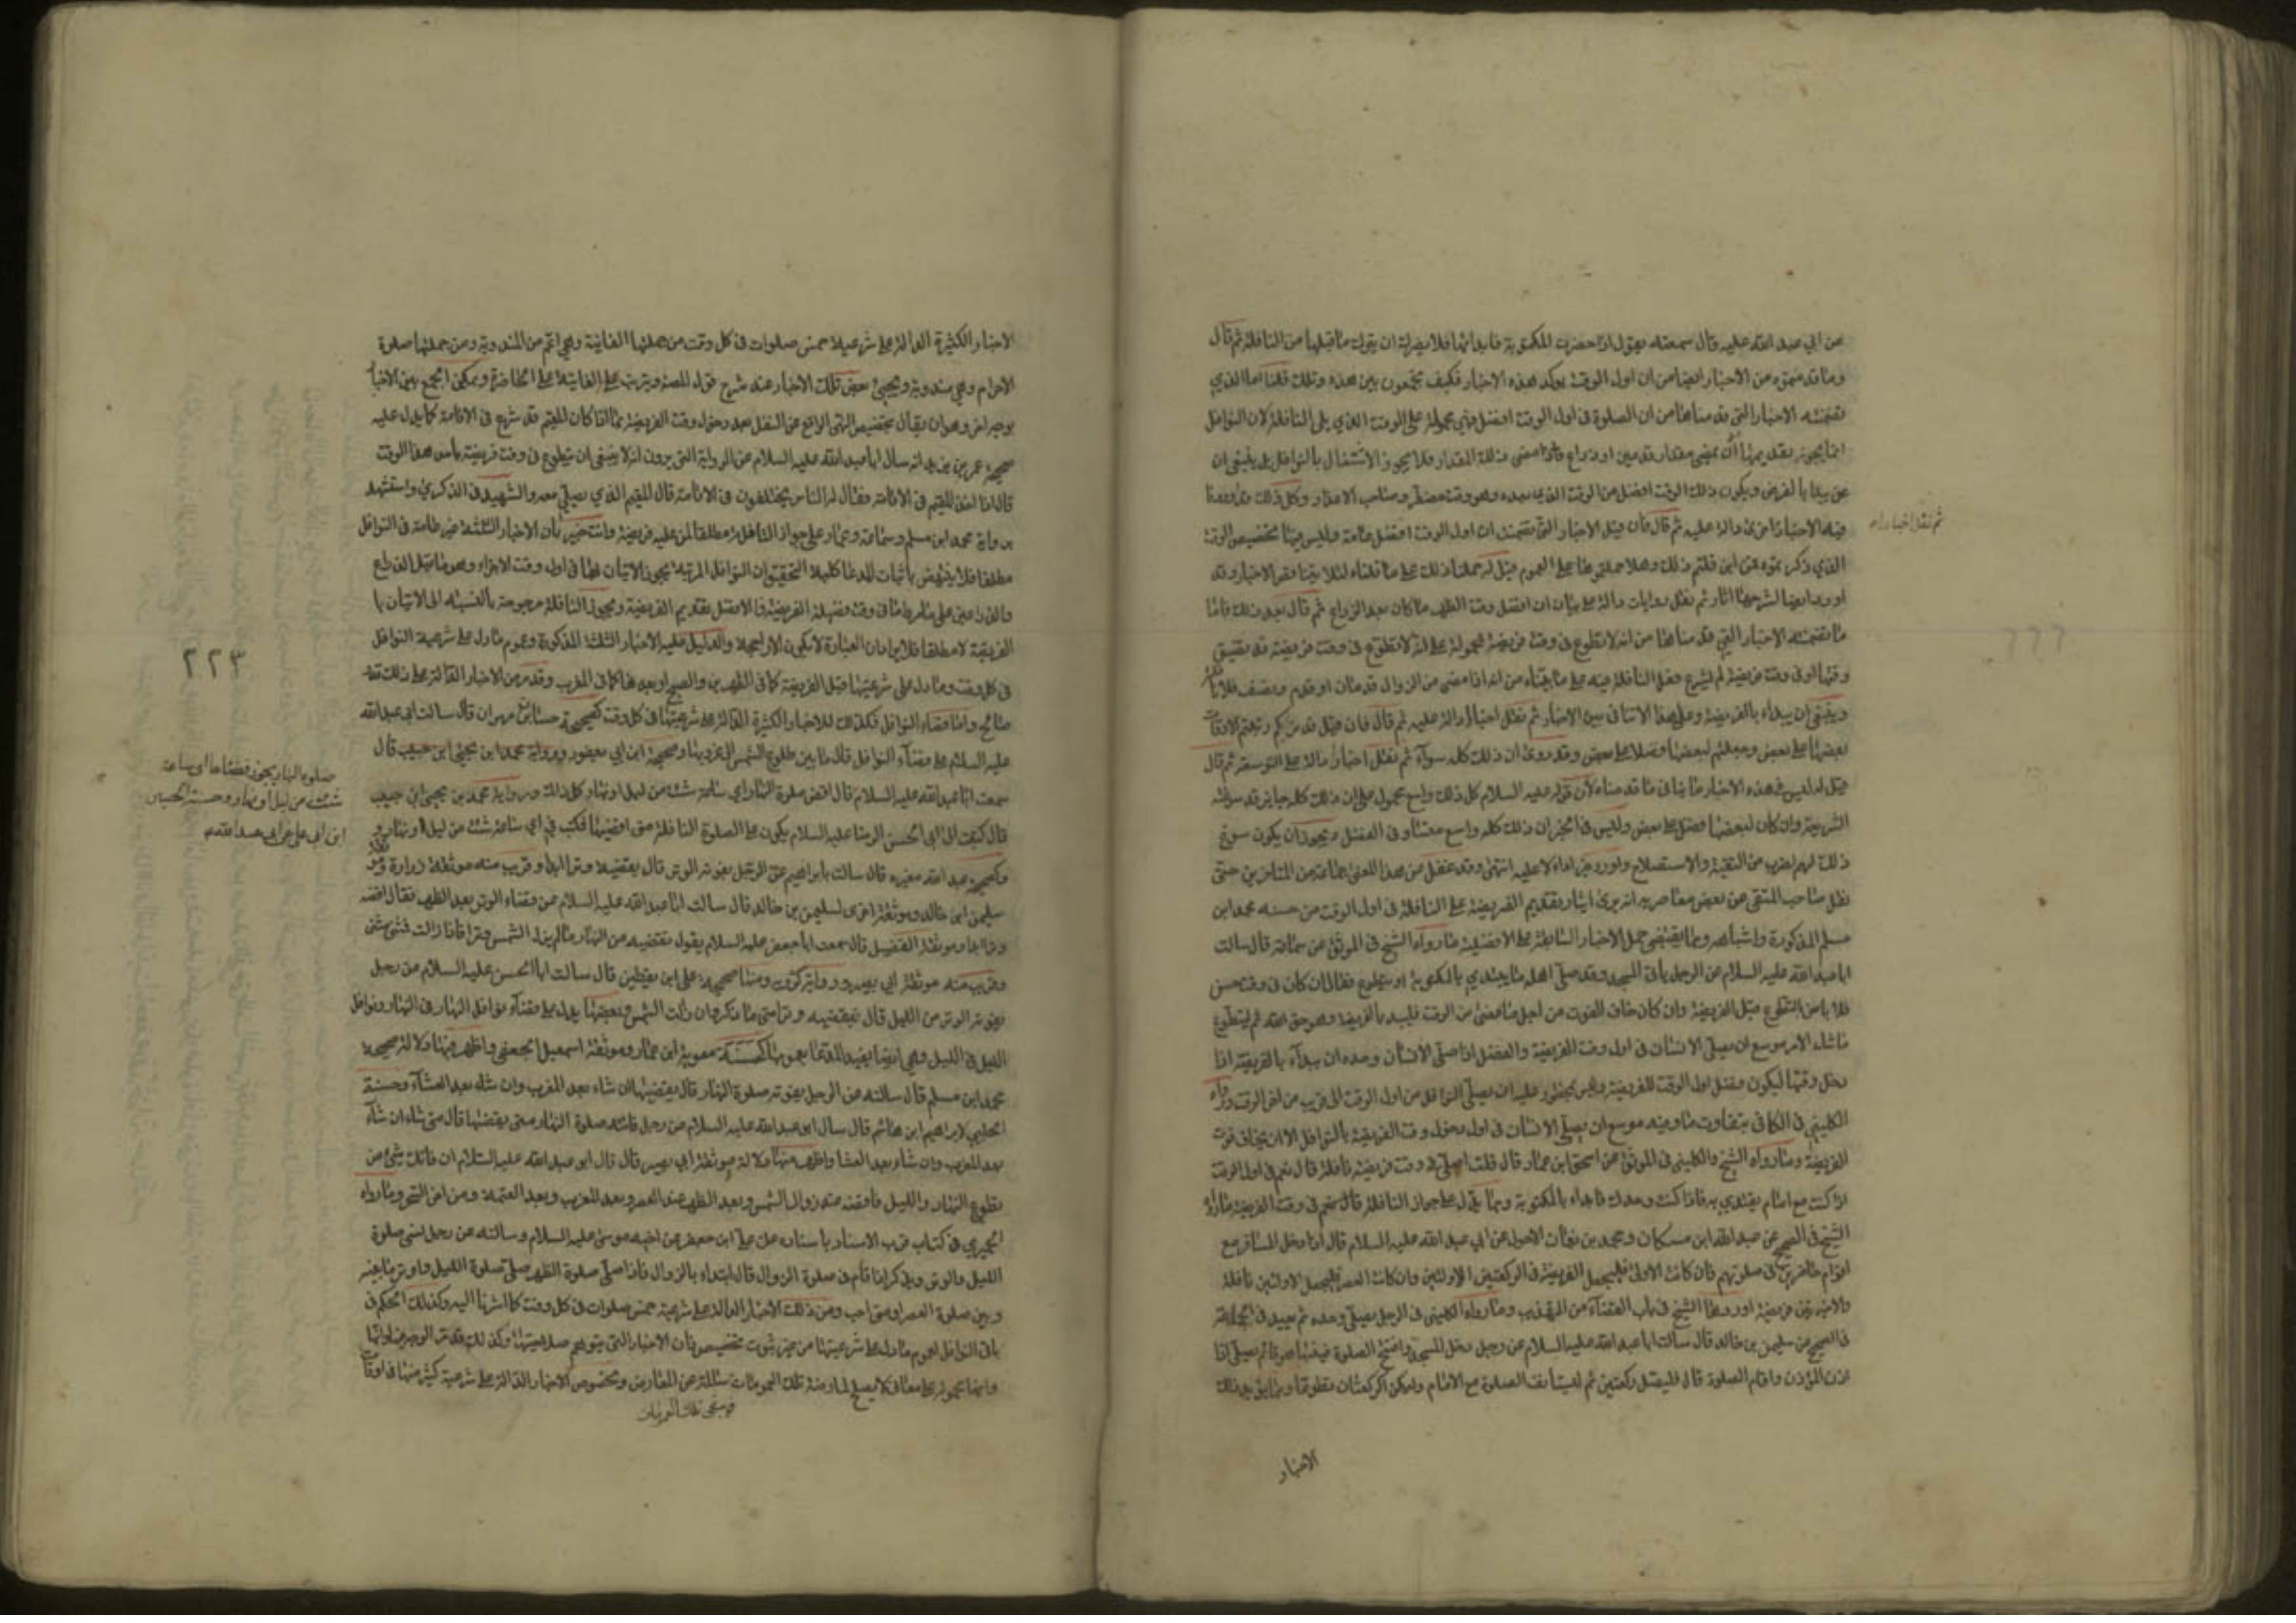 عن ابي عبد الله عليه قال سمعته يقول اذا حضرت المكتوبة فابدا بها فلا يضرك ان يترك ما قبلها من النافلة ثم قال
وما قد منعوه من الاخبار ايضا من ان اول الوقت يوكد هذه الاخبار فكيف تجمعون بين هذه وتلك قلنا اما الذي
تضمنه الاخبار التي قدمناها من ان الصلوة في اول الوقت افضل فهي محمولة على الوقت الذي يلى النافلة لان النوافل
انما يجوز تقديمها الى يمضي مقدار قدمين او ذراع فاذا مضى ذلك المقدار فلا يجوز الاشتغال بالنوافل بل ينبغي ان
يبدا بالفرض ويكون ذلك الوقت افضل من الوقت الذي بعده وهو وقت مضطر وصاحب الاعذار وكل ذلك
ثم نقل اخبار
فيه الاخبار اخرى دالة عليه ثم قال فان قيل الاخبار التي تضمنت ان اول الوقت افضل عامة وليس فيها تخصيص الوقت
الذي ذكرتموه من اين قلتم ذلك وهلا حملتموها على العموم قيل له حملنا ذلك على ما قلناه لئلا يتناقض الاخبار وقد
اوردا ايضا ثم نقل روايات دالة على بيان ان افضل وقت الظهر ما كان بعد الزوال ثم قال بعد ذلك فاما
ما تضمنته الاخبار التي قدمناها من انه لا تطوع في وقت فريضة محمولة على انه لا تطوع في وقت فريضة قد تضيق
وقتها او في وقت فريضة لم يشرع فعل النافلة فيه على ما بيناه من انه اذا مضى من الزوال قدمان او قدم ونصف فلا نافلة
وينبغي ان يبداء بالفريضة وعلى هذا لا تنافي بين الاخبار ثم نقل اخبارا دالة عليه ثم قال فان قيل قد ذكرتم رتبتم الاوقات
بعضها على بعض وجعلتم لبعضها فضلا على بعض وقد روى ان ذلك كله سوآء ثم نقل اخبارا دالة على التوسعة ثم قال
قيل له ليس في هذه الاخبار ما ينافي ما قدمناه لان قوله عليه السلام كل ذلك واسع محمول على ان ذلك كله جايز قد سوغته
الشريعة وان كان لبعضها فضل على بعض وليس في الخبر ان ذلك كله واسع متساو في الفضل ويجوز ان يكون سوغ
ذلك لهم لضرب من التقية والاستصلاح انتهى وقد غفل عن هذا المعنى جماعة من المتاخرين حتى
نقل صاحب المنتقى عن بعض معاصريه انه يرى ايثار تقديم الفريضة على النافلة في اول الوقت من حسنة محمد ابن
مسلم المذكورة واشباهه ومما يقتضي حمل الاخبار السابقة على الافضلية ما رواه الشيخ في الموثق عن سماعة قال سالت
ابا عبد الله عليه السلام عن الرجل يأتي المسجد وقد صلى اهله ما يبتدي بالمكتوبة او يتطوع فقال ان كان في وقت حسن
فلا بأس بالتطوع قبل الفريضة وان كان خاف الفوت من اجل ما مضى من الوقت فليبدا بالفريضة وهو حق الله ثم ليتطوع
ما شاء الامر موسع ان يصلى الانسان في اول وقت الفريضة والفضل اذا صلى الانسان وحده ان يبدآء بالفريضة اذا
دخل وقتها ليكون فضل اول الوقت للفريضة وليس بمحظور عليه ان يصلى النوافل من اول الوقت الى قريب من اخر الوقت ورواه
الكليني في الكافي بتفاوت ما وفيه موسع ان يصلى الانسان في اول دخول وقت الفريضة بالنوافل الا ان يخاف فوت
الفريضة وما رواه الشيخ والكليني في الموثق عن اسحق ابن عمار قال قلت اصلى في وقت فريضة نافلة قال نعم في اول الوقت
اذا كنت مع امام يقتدى به فاذا كنت وحدك فابداء بالمكتوبة ومما يدل على جواز النافلة في وقت الفريضة ما رواه
الشيخ في الصحيح عن عبد الله ابن مسكان ومحمد بن نعمان الاحول عن ابي عبد الله عليه السلام قال اذا دخل المسافر مع
اقوام حاضرين في صلوتهم فان كانت الاولى فليجعل الفريضة في الركعتين الاولتين وان كانت العصر فليجعل الاولتين نافلة
والاخيرتين فريضة اوردها الشيخ في باب القضآء من التهذيب وما رواه الكليني في الرجل يصلى وحده ثم يعيد في الجماعة
في الصحيح عن سليمن بن خالد قال سالت ابا عبد الله عليه السلام عن رجل دخل المسجد وافتتح الصلوة فبينما هو قائم يصلى اذا
اذن المؤذن واقام الصلوة قال فليصل ركعتين ثم ليستأنف الصلوة مع الامام وليكن الركعتان تطوعا
الاخبار
الاخبار الكثيرة الدالة على شرعية خمس صلوات في كل وقت من جملتها الفايتة وهي اعم من المندوبة ومن جملتها صلوة
الاحرام وهي مندوبة ويجيئ بعض تلك الاخبار عند شرح قول المصنف ويترتب على الفايتة على الحاضرة ويمكن الجمع بين الاخبار
بوجه اخر وهو ان يقال بتخصيص النهى الواقع عن التنفل بعد دخول وقت الفريضة بما اذا كان المقيم قد شرع في الاقامة كما يدل عليه
صحيحة عمر بن يزيد انه سال ابا عبد الله عليه السلام عن الرواية التي يروون انه لا ينبغى ان يتطوع في وقت فريضة ما حد هذا الوقت
قال اذا اخذ المقيم في الاقامة فقال له الناس يختلفون في الاقامة قال المقيم الذي يصلى معه والشهيد في الذكرى واستشهد
برواية محمد ابن مسلم وسماعة وعمار على جواز النافلة مطلقا لمن عليه فريضة وانت خبير بأن الاخبار الثلثة غير ظاهرة في النوافل
مطلقا فلا ينهض بأثبات المدعا كليها التحقيق ان النوافل المرتبة يجوز الاتيان بها في اول وقت الاجزاء وهو ما قبل الذراع
الفريضة لا مطلقا والدليل عليه الاخبار الثلثة المذكورة وعموم ما دل على شرعية النوافل
في كل وقت وما دل على شرعيتها قبل الفريضة كما في الظهرين والصبح او بعدها كما في المغرب وقد مر من الاخبار الدالة على ذلك
صالح واما قضاء النوافل فكذلك للاخبار الكثيرة الدالة على شرعيتها في كل وقت كصحيحة حسان ابن مهران قال سالت ابي عبد الله
عليه السلام عن قضآء النوافل قال ما بين طلوع الشمس الى غروبها وصحيحة ابن ابي يعفور ورواية محمد ابن يحيى ابن حبيب قال
سمعت ابا عبد الله عليه السلام قال اقض صلوة النهار اي ساعة شئت من ليل او نهار وكل ذلك ورواية محمد بن يحيى ابن حبيب
صلوة النهار يجوز قضاءها اى ساعة
شئت من ليل او نهار وحسنة الحسين
ابن ابي علي عن ابي عبد الله
قال كتبت الى ابي الحسن الرضا عليه السلام يكون على الصلوة النافلة متى اقضيها فكتب في اي ساعة شئت من ليل او نهار و
وكصحيحة عبد الله مغيره قال سالت ابا ابراهيم عن الرجل يفوته الوتر قال يقضيه وترا ابدا وقريب منه موثقة زرارة
سليمن ابن خالد وموثقة اخرى لسليمن بن خالد قال سالت ابا عبد الله عليه السلام عن قضاء الوتر بعد الظهر فقال اقضه
وترا ابدا وموثقة الفضيل قال سمعت ابا جعفر عليه السلام يقول يقضيه من النهار ما لم يزل الشمس وترا فاذا زالت فمثنى مثنى
وقريب منه موثقة ابي بصير ورواية كردويه ومنها صحيحة على ابن يقطين قال سالت ابا الحسن عليه السلام عن رجل
يفوته الوتر من الليل قال يقضيه وترا متى ما ذكر وان زالت الشمس وبعضها يدل على قضآء نوافل النهار في النهار ونوافل
الليل في الليل وهي ايضا يفيد المدعا بعمومها كحسنة معوية ابن عمار وموثقة اسمعيل الجعفى واظهر منها دلالة صحيحة
محمد ابن مسلم قال سالته عن الرجل يفوته صلوة النهار قال يقضيها ان شاء بعد المغرب وان شاء بعد العشآء وحسنة
الحلبي لابراهيم ابن هاشم قال سال ابو عبد الله عليه السلام عن رجل فاتته صلوة النهار متى يقضيها قال متى شاء ان شآء
بعد المغرب وان شاء بعد العشا واظهر منها دلالة موثقة ابي بصير قال قال ابو عبد الله عليه السلام ان فاتك شئ من
تطوع النهار والليل فاقضه عند زوال الشمس وبعد الظهر عند العصر وبعد المغرب وبعد العتمة ومن اخر السحر وما رواه
الحميري في كتاب قرب الاسناد باسناده عن علي ابن جعفر عن اخيه موسى عليه السلام وسالته عن رجل نسى صلوة
الليل والوتر ويذكر اذا قام في صلوة الزوال قال ابتداء بالزوال فاذا صلى صلوة الظهر صلى صلوة الليل واوتر ما بينه
وبين صلوة العصر او متى احب ومن ذلك الاخبار الدالة على شرعية خمس صلوات في كل وقت كما اشرنا اليه وكذلك الحكم في
باقي النوافل لعموم ما دل على شرعيتها من غير ثبوت مخصص فان الاخبار التي يتوهم صلاحيتها
سالمة عن المعارض وبخصوص الاخبار الدالة على شرعية كثير منها في اوقات
٢٢٣